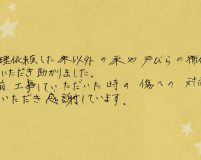 理依頼した床以外の床や戸びらの補
いただき助かりました。
前工事していただいた時の傷への対
いただき感謝しています。